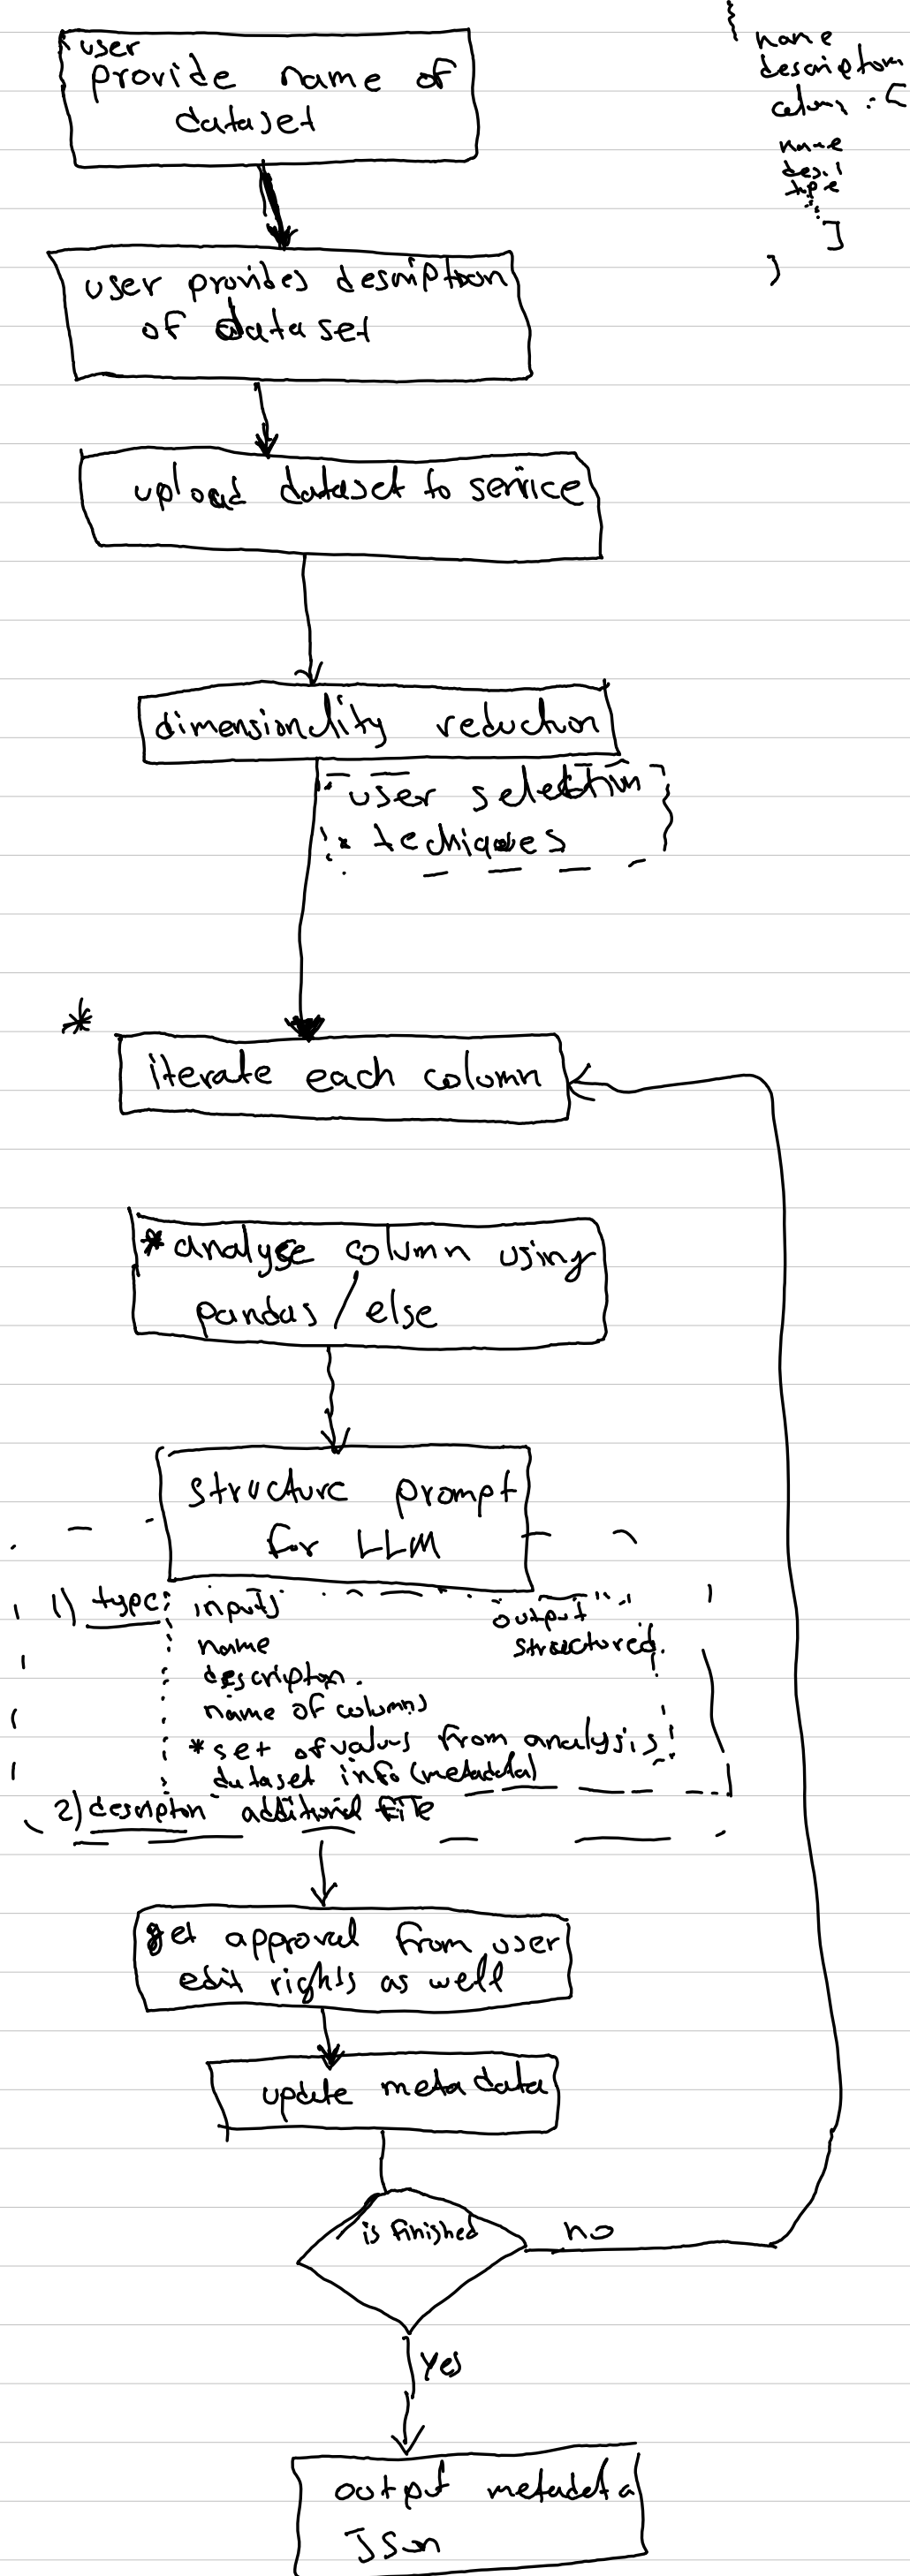 user
provide name of
dataset
{
name
description
colums : [
name
des.!
type
]
}
user provides description
of dataset
upload dataset to service
dimensionality reduction
user selection
* techiques
*
iterate each column
* analyse column using
pandas / else
structure prompt
for LLM
1) type: inputs
name
description.
name of columns
* set of values from analysis
dataset info (metadata)
output
structured.
2) description additional file
get approval from user
edit rights as well
update metadata
is finished
no
yes
output metadata
Json